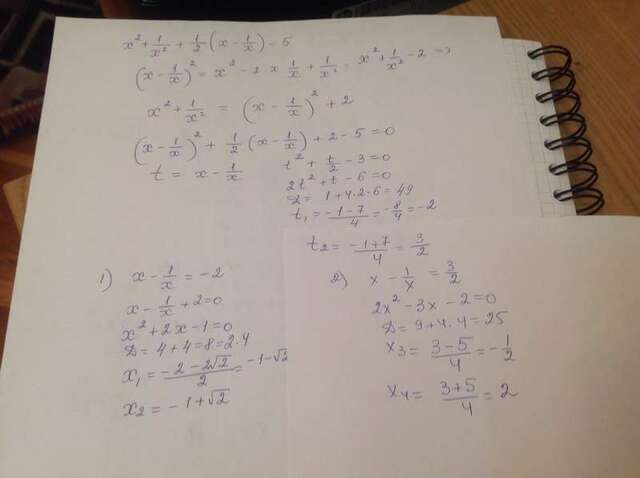 x² + 1/x² + 1/2 (x - 1/x) = 5
(x - 1/x)² = x² - 2 x 1/x + 1/x² = x² + 1/x² - 2 =>
x² + 1/x² = (x - 1/x)² + 2
(x - 1/x)² + 1/2 (x - 1/x) + 2 - 5 = 0
t = x - 1/x
t² + t/2 - 3 = 0
2t² + t - 6 = 0
D = 1 + 4·2·6 = 49
t₁ = (-1-7)/4 = -8/4 = -2
t₂ = (-1+7)/4 = 3/2
1) x - 1/x = -2
x - 1/x + 2 = 0
x² + 2x - 1 = 0
D = 4 + 4 = 8 = 2·4
x₁ = (-2 - 2√2)/2 = -1-√2
x₂ = -1 + √2
2) x - 1/x = 3/2
2x² - 3x - 2 = 0
D = 9 + 4·4 = 25
x₃ = (3-5)/4 = -1/2
x₄ = (3+5)/4 = 2